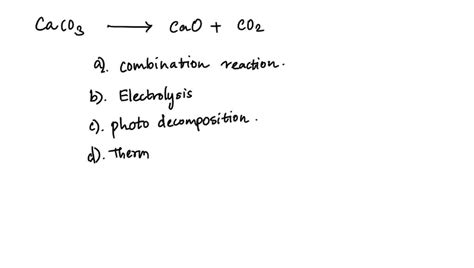 CaCO₃ ⟶ CaO + CO₂
a). Combination reaction.
b). Electrolysis
c). photo decomposition.
d). Therm